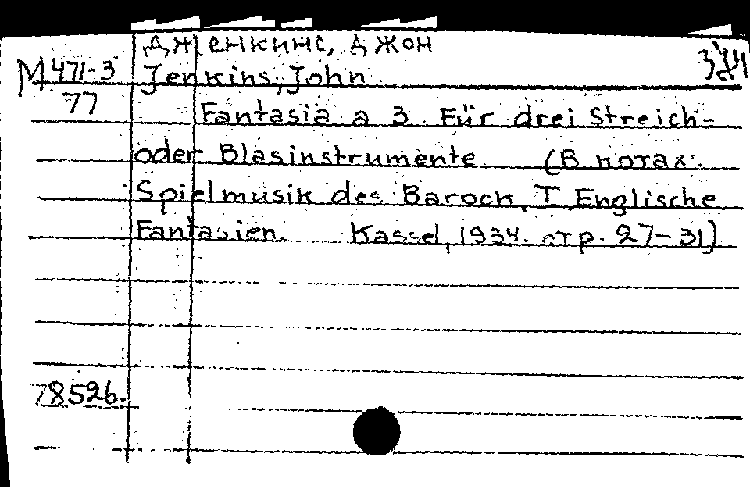 Дженкинс, Джон
М 471-3 Jenkins, John
77 Fantasia a 3. Für drei Streich-
oder Blasinstrumente (В нотах:
Spielmusik des Barock, I Englische
Fantasien. Kassel, 1934. стр. 27-31)
78526.